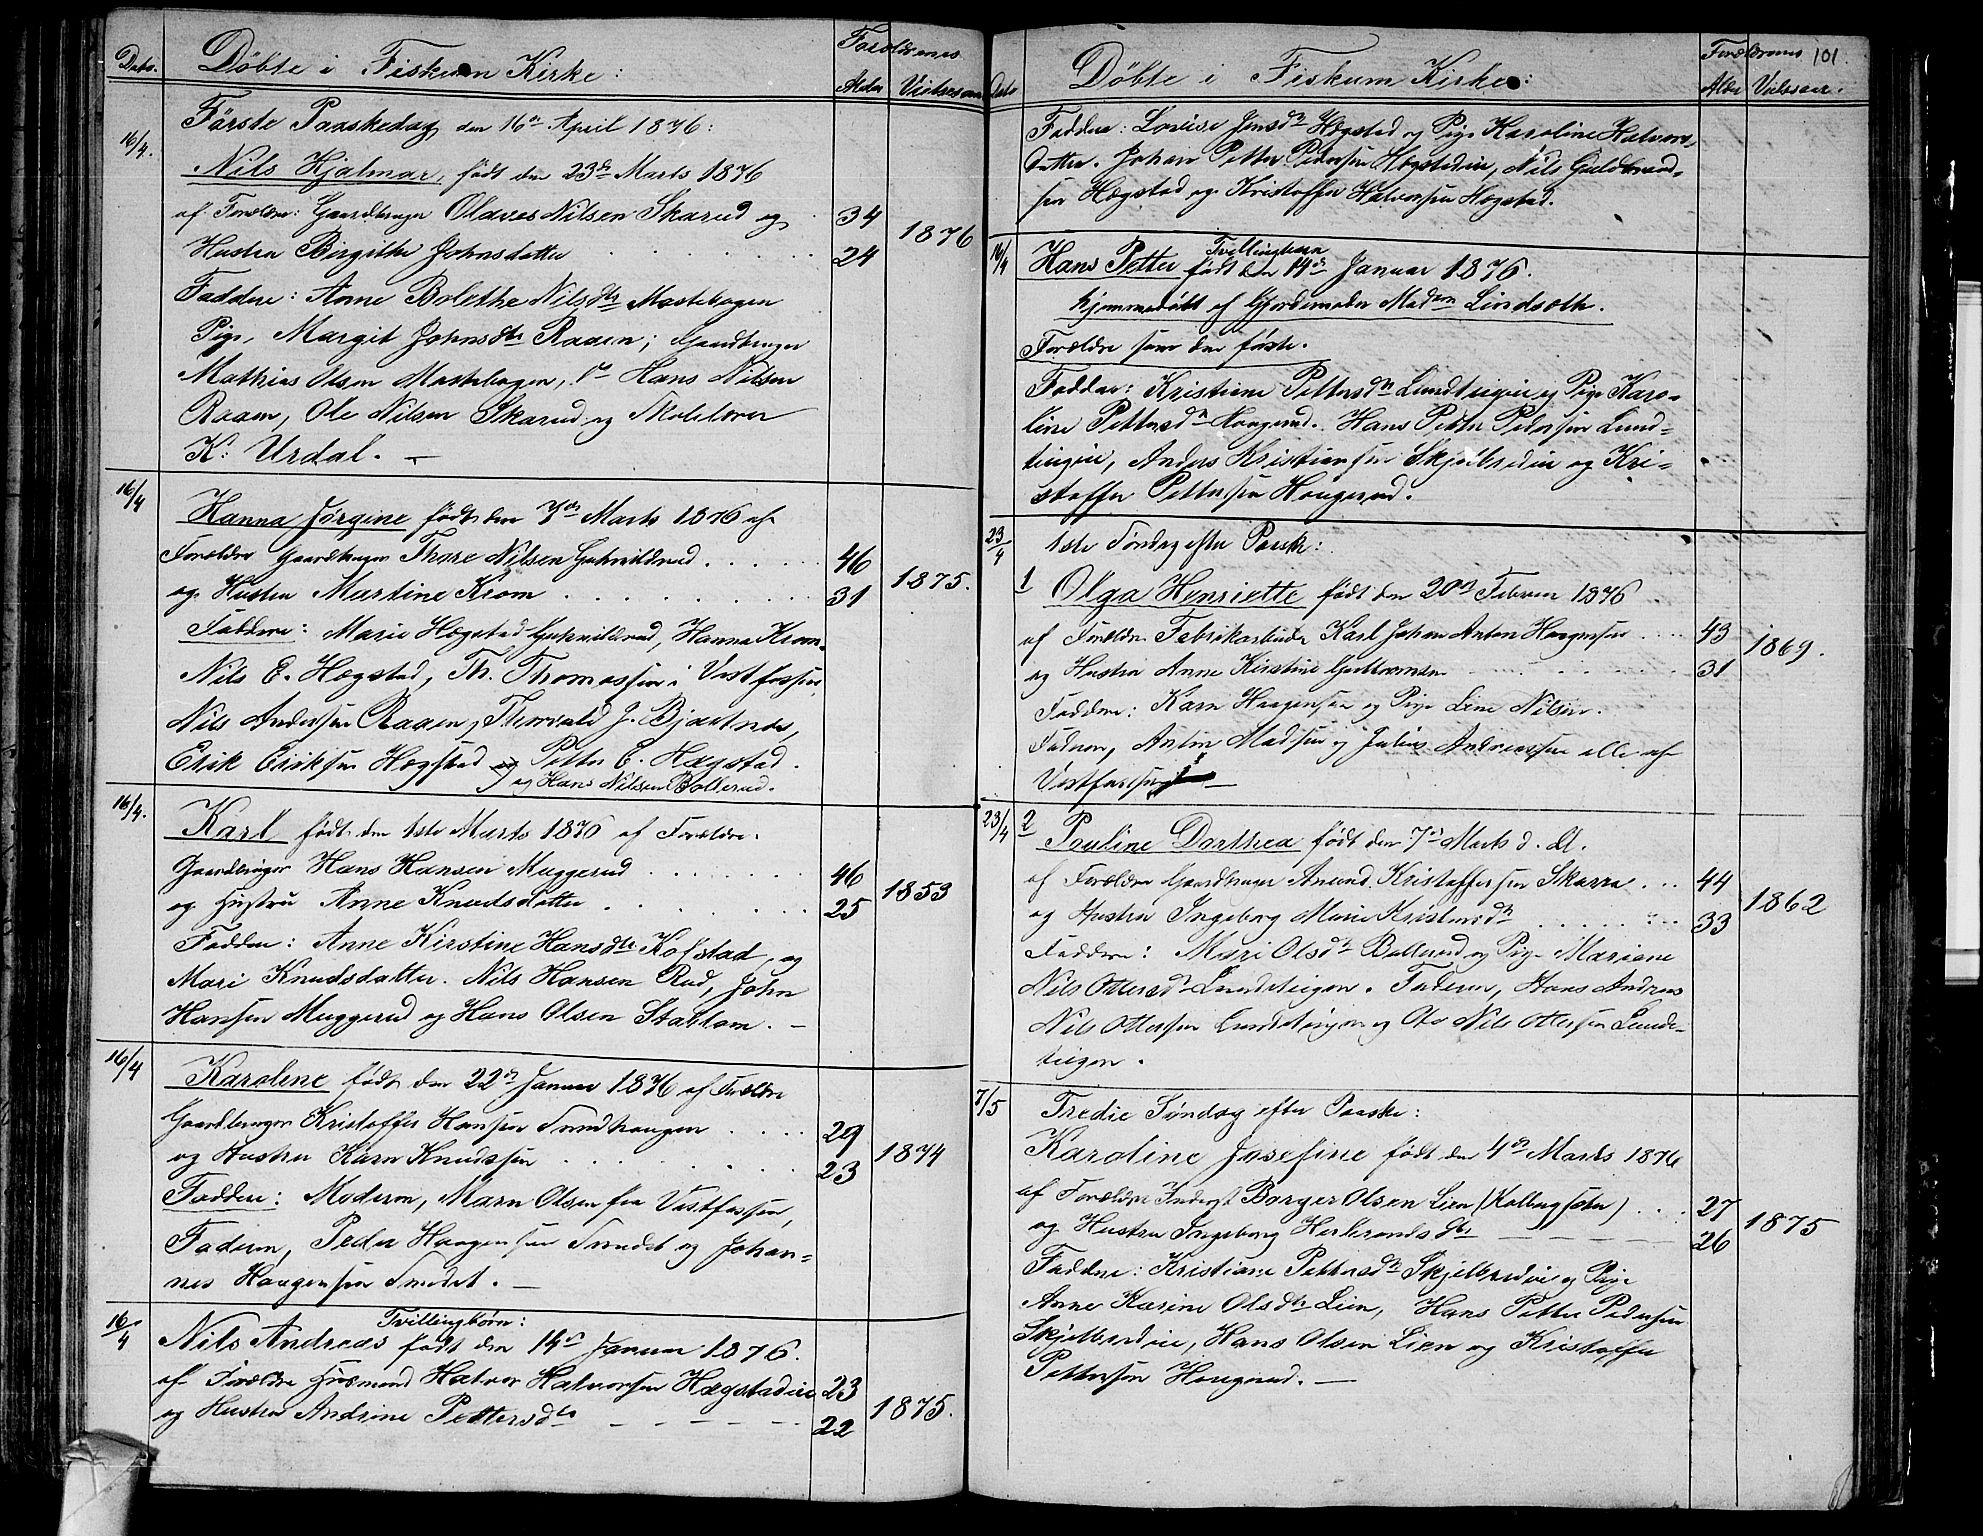 Dato.
Döbte i Fiskum Kirke:
Forældrenes
Alder
Vielsesaar
16/4.
Förste Paaskedag den 16de April 1876:
Nils Hjalmar, født den 23de Marts 1876
af Forældre: Gaardbruger Olaves Nilsen Skarud og 34
Hustru Birgithe Johnsdatter 24
1876
Faddere: Anne Bolethe Nilsdtr Mastebogen
Pige, Margit Johnsdtr Raaen; Gaardbruger
Mathias Olsen Mastebogen, do Hans Nilsen
Raaen, Ole Nilsen Skarud og Skolelærer
K: Urdal. —
16/4
Hanna Jørgine født den 7de Marts 1876 af
Forældre Gaardbruger Thore Nilsen 46
og Hustru Martine Krom 31
1875.
Faddere: Marie Hægstad, Hanna Krom
Nils E. Hægstad, Th. Thomassen i Vestfossen
Nils Andersen Raaen, Thorvald J. Bjærtnæs,
Erik Eriksen Hægstad og Petter E. Hægstad.
og Hans Nilsen Bollerud.
16/4.
Karl født den 1ste Marts 1876 af Forældre:
Gaardbruger Hans Hansen Muggerud 46
og Hustru Anne Knudsdatter 25
1853
Faddere: Anne Kirstine Hansdtr Kolstad, og
Mari Knudsdatter. Nils Hansen Rud, John
Hansen Muggerud og Hans Olsen Stablom. —
16/4
Karoline født den 22de Januar 1876 af Forældre
Gaardbruger Kristoffer Hansen 29
og Hustru Karn Knudssen 23
1874
Faddere: Moderen, Marn Olsen fra Vestfossen,
Faderen, Peder Haagensen Smedet og Johan-
nes Haagensen Smedet. —
16/4
Tvillingbørn:
Nils Andreas født den 14de Januar 1876.
af Forældre Husmand Halvor Halvorsen Hægstadeie 23
og Hustru Andrine Pettersdtr 22
1875.
Dato
Döbte i Fiskum Kirke:
Forældrenes 101.
Alder Vielsaar.
Faddere: Lovise Jensdtr Hægstad og Pige Karoline Halvors
datter. Johan Petter Pedersen Hægstadeie, Nils Guldbrand-
sen Hægstad og Kristoffer Halvorsen Hægstad.
16/4
Tvillingbarn
Hans Petter født den 14de Januar 1876.
hjemmedöbt af Gjordemoder Madm Lindsæth.
Forældre som den første.
Faddere: Kristiane Pettersdtr Lundteigeie og Pige Karo-
line Pettersdtr Haugerud. Hans Petter Pedersen Lund-
teigeie, Anders Kristiansen Skjelbredeie og Kri-
stoffer Pettersen Haugerud.
23/4
1ste Søndag efter Paaske:
1 Olga Henriette født den 20de Februar 1876
af Forældre Fabrikarbeider Karl Johan Anton Haagensen 43
og Hustru Anne Kirstine Guttormsen 31
1869.
Faddere: Karn Haagensen og Pige Line Nilsen.
Faderen, Anton Madsen og Julius Andreassen alle af
Vestfossen —
23/4
2 Pauline Dorthea født den 7de Marts d. A.
af Forældre Gaardbruger Amund Kristoffersen Skarra 44
og Hustru Ingeborg Marie Kristensdtr 33
1862
Faddere: Mari Olsdtr Bollerud og Pige Mariane
Nils Ottersdtr Lundeteigen. Faderen, Hans Andreas
Nils Ottersen Lundeteigen og Nils Ottersen Lunde-
teigen.
7/5
Tredie Søndag efter Paaske:
Karoline Josefine født den 4de Marts 1876
af Forældre Inderst Borger Olsen Lien (Kolbergsæter) 27
og Hustru Ingeborg Herbrandsdtr 26
1875
Faddere: Kristiane Pettersdtr Skjelbredeie og Pige
Anne Karine Olsdtr Lien, Hans Petter Pedersen
Skjelbredeie, Hans Olsen Lien og Kristoffer
Pettersen Haugerud. —